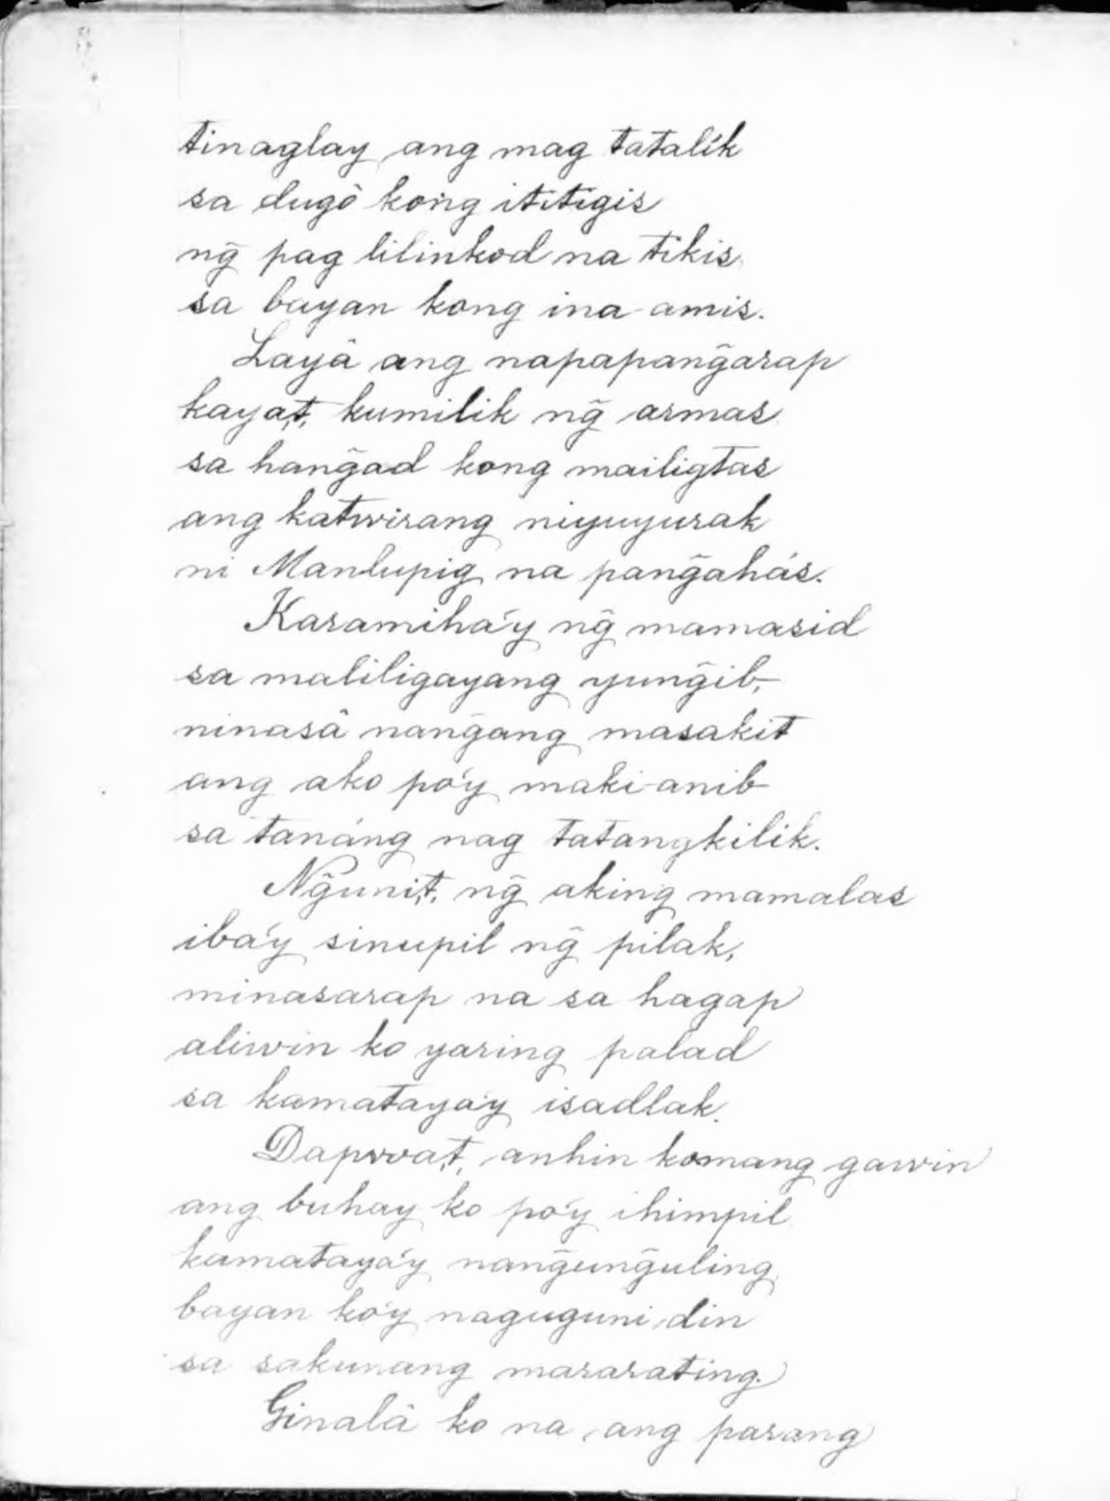 tinaglay ang mag tatalik
sa dugô kong ititigis
ng̃ pag lilinkod na tikis
sa bayan kong ina-amis.
Layâ ang napapang̃arap
kaya,t, kumilik ng̃ armas
sa hang̃ad kong mailigtas
ang katwirang niyuyurak
ni Manlupig na pang̃ahás.
Karamiha'y ng̃ mamasid
sa maliligayang yung̃ib,
ninasâ nang̃ang masakit
ang ako po'y maki-anib
sa tanáng nag tatangkilik.
Ng̃uni,t, ng̃ aking mamalas
iba'y sinupil ng̃ pilak,
minasarap na sa hagap
aliwin ko yaring palad
sa kamataya'y isadlak.
Dapwa,t, anhin komang gawin
ang buhay ko po'y ihimpil
kamataya'y nang̃ung̃uling
bayan ko'y naguguni din
sa sakunang mararating.
Ginalâ ko na ang parang